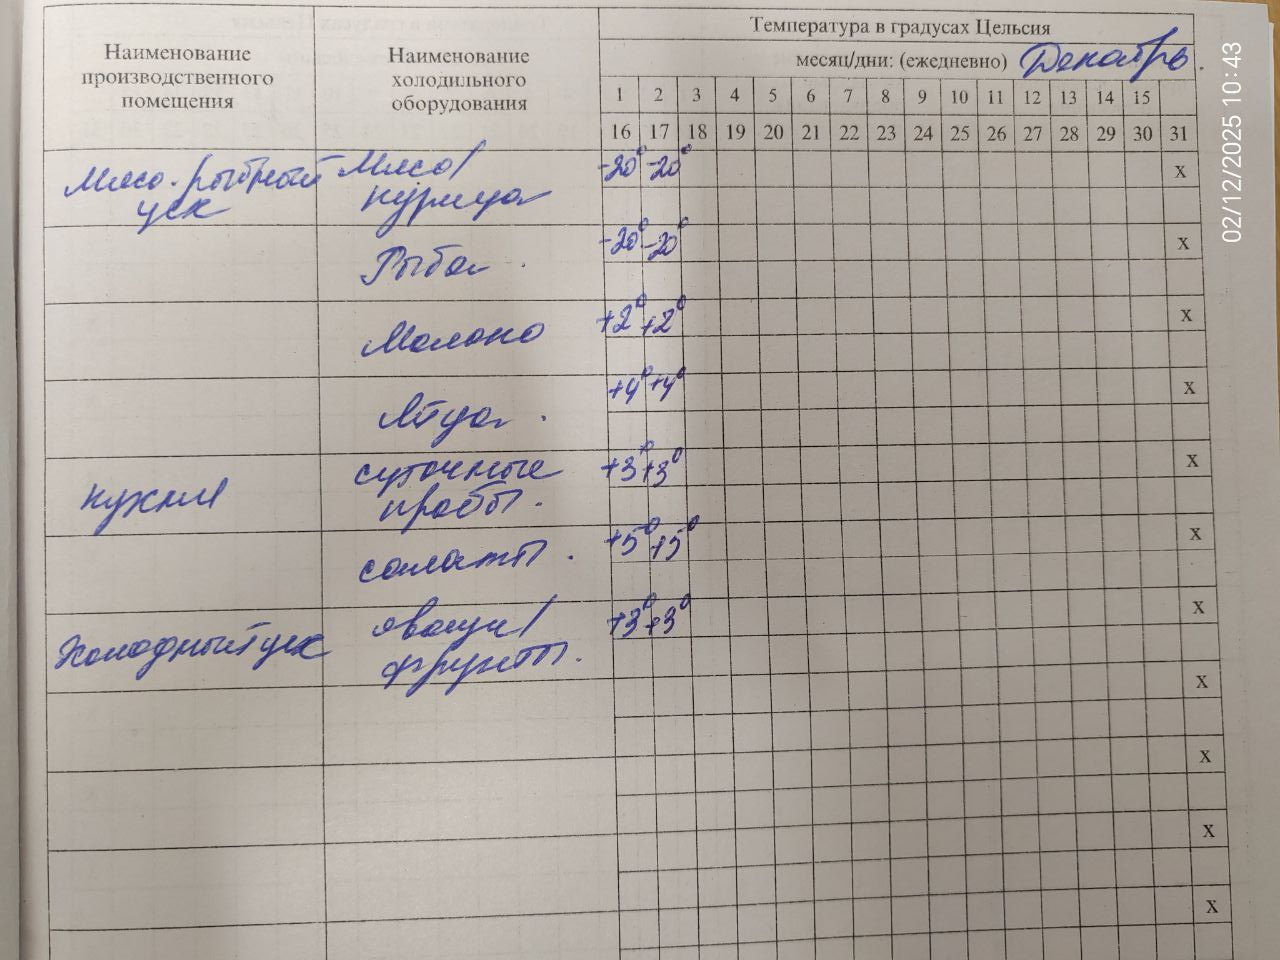 Температура в градусах Цельсия
Наименование производственного помещения
Наименование холодильного оборудования
месяц/дни: (ежедневно) Декабрь.
1 2 3 4 5 6 7 8 9 10 11 12 13 14 15
16 17 18 19 20 21 22 23 24 25 26 27 28 29 30 31
Мясо-рыбный цех Мясо/курица -20° -20° х
Рыба -20° -20° х
Молоко +2° +2° х
Яйцо +4° +4° х
кухня суточные пробы. +3° +3° х
салаты. +5° +5° х
Холодный цех овощи/фрукты. +3° +3° х
х
х
х
х
02/12/2025 10:43